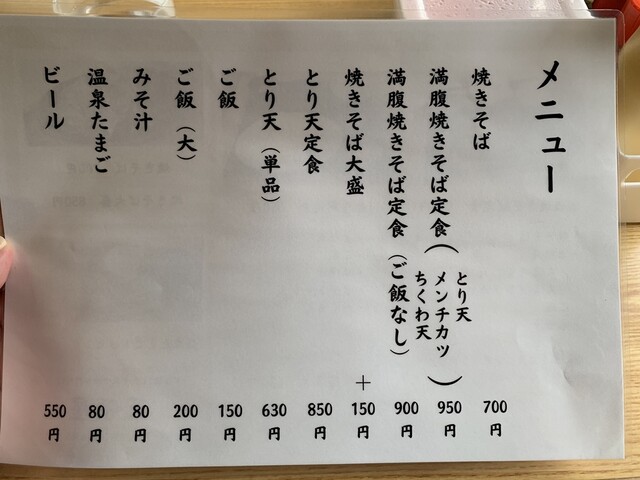 メニュー
焼きそば 700円
満腹焼きそば定食(とり天 メンチカツ ちくわ天) 950円
満腹焼きそば定食(ご飯なし) 900円
焼きそば大盛 +150円
とり天定食 850円
とり天(単品) 630円
ご飯 150円
ご飯(大) 200円
みそ汁 80円
温泉たまご 80円
ビール 550円